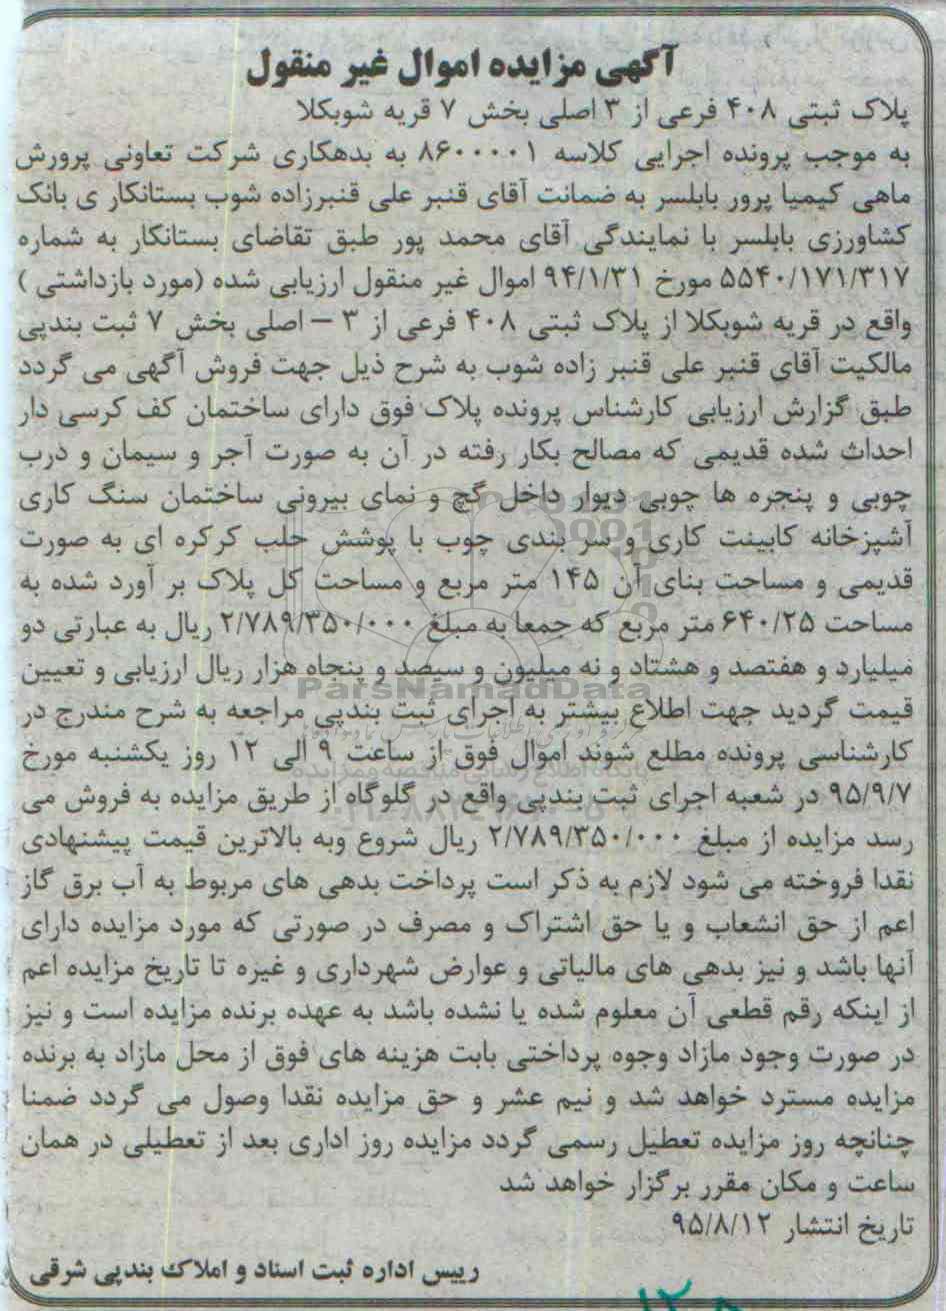 آگهی مزایده اموال غیر منقول
پلاک ثبتی ۴۰۸ فرعی از ۳ اصلی بخش ۷ قریه شوبکلا
به موجب پرونده اجرایی کلاسه ۸۶۰۰۰۰۱ به بدهکاری شرکت تعاونی پرورش
ماهی کیمیا پرور بابلسر به ضمانت آقای قنبر علی قنبرزاده شوب بستانکار ی بانک
کشاورزی بابلسر با نمایندگی آقای محمد پور طبق تقاضای بستانکار به شماره
۵۵۴۰/۱۷۱/۳۱۷ مورخ ۹۴/۱/۳۱ اموال غیر منقول ارزیابی شده (مورد بازداشتی )
واقع در قریه شوبکلا از پلاک ثبتی ۴۰۸ فرعی از ۳ – اصلی بخش ۷ ثبت بندپی
مالکیت آقای قنبر علی قنبر زاده شوب به شرح ذیل جهت فروش آگهی می گردد
طبق گزارش ارزیابی کارشناس پرونده پلاک فوق دارای ساختمان کف کرسی دار
احداث شده قدیمی که مصالح بکار رفته در آن به صورت آجر و سیمان و درب
چوبی و پنجره ها چوبی دیوار داخل گچ و نمای بیرونی ساختمان سنگ کاری
آشپزخانه کابینت کاری و سر بندی چوب با پوشش حلب کرکره ای به صورت
قدیمی و مساحت بنای آن ۱۴۵ متر مربع و مساحت کل پلاک بر آورد شده به
مساحت ۶۴۰/۲۵ متر مربع که جمعا به مبلغ ۲/۷۸۹/۳۵۰/۰۰۰ ریال به عبارتی دو
میلیارد و هفتصد و هشتاد و نه میلیون و سیصد و پنجاه هزار ریال ارزیابی و تعیین
ParsNamadData
قیمت گردید جهت اطلاع بیشتر به اجرای ثبت بندپی مراجعه به شرح مندرج در
کارشناسی پرونده مطلع شوند اموال فوق از ساعت ۹ الی ۱۲ روز یکشنبه مورخ
۹۵/۹/۷ در شعبه اجرای ثبت بندپی واقع در گلوگاه از طریق مزایده به فروش می
رسد مزایده از مبلغ ۲/۷۸۹/۳۵۰/۰۰۰ ریال شروع وبه بالاترین قیمت پیشنهادی
نقدا فروخته می شود لازم به ذکر است پرداخت بدهی های مربوط به آب برق گاز
اعم از حق انشعاب و یا حق اشتراک و مصرف در صورتی که مورد مزایده دارای
آنها باشد و نیز بدهی های مالیاتی و عوارض شهرداری و غیره تا تاریخ مزایده اعم
از اینکه رقم قطعی آن معلوم شده یا نشده باشد به عهده برنده مزایده است و نیز
در صورت وجود مازاد وجوه پرداختی بابت هزینه های فوق از محل مازاد به برنده
مزایده مسترد خواهد شد و نیم عشر و حق مزایده نقدا وصول می گردد ضمنا
چنانچه روز مزایده تعطیل رسمی گردد مزایده روز اداری بعد از تعطیلی در همان
ساعت و مکان مقرر برگزار خواهد شد
تاریخ انتشار ۹۵/۸/۱۲
رییس اداره ثبت اسناد و املاک بندپی شرقی